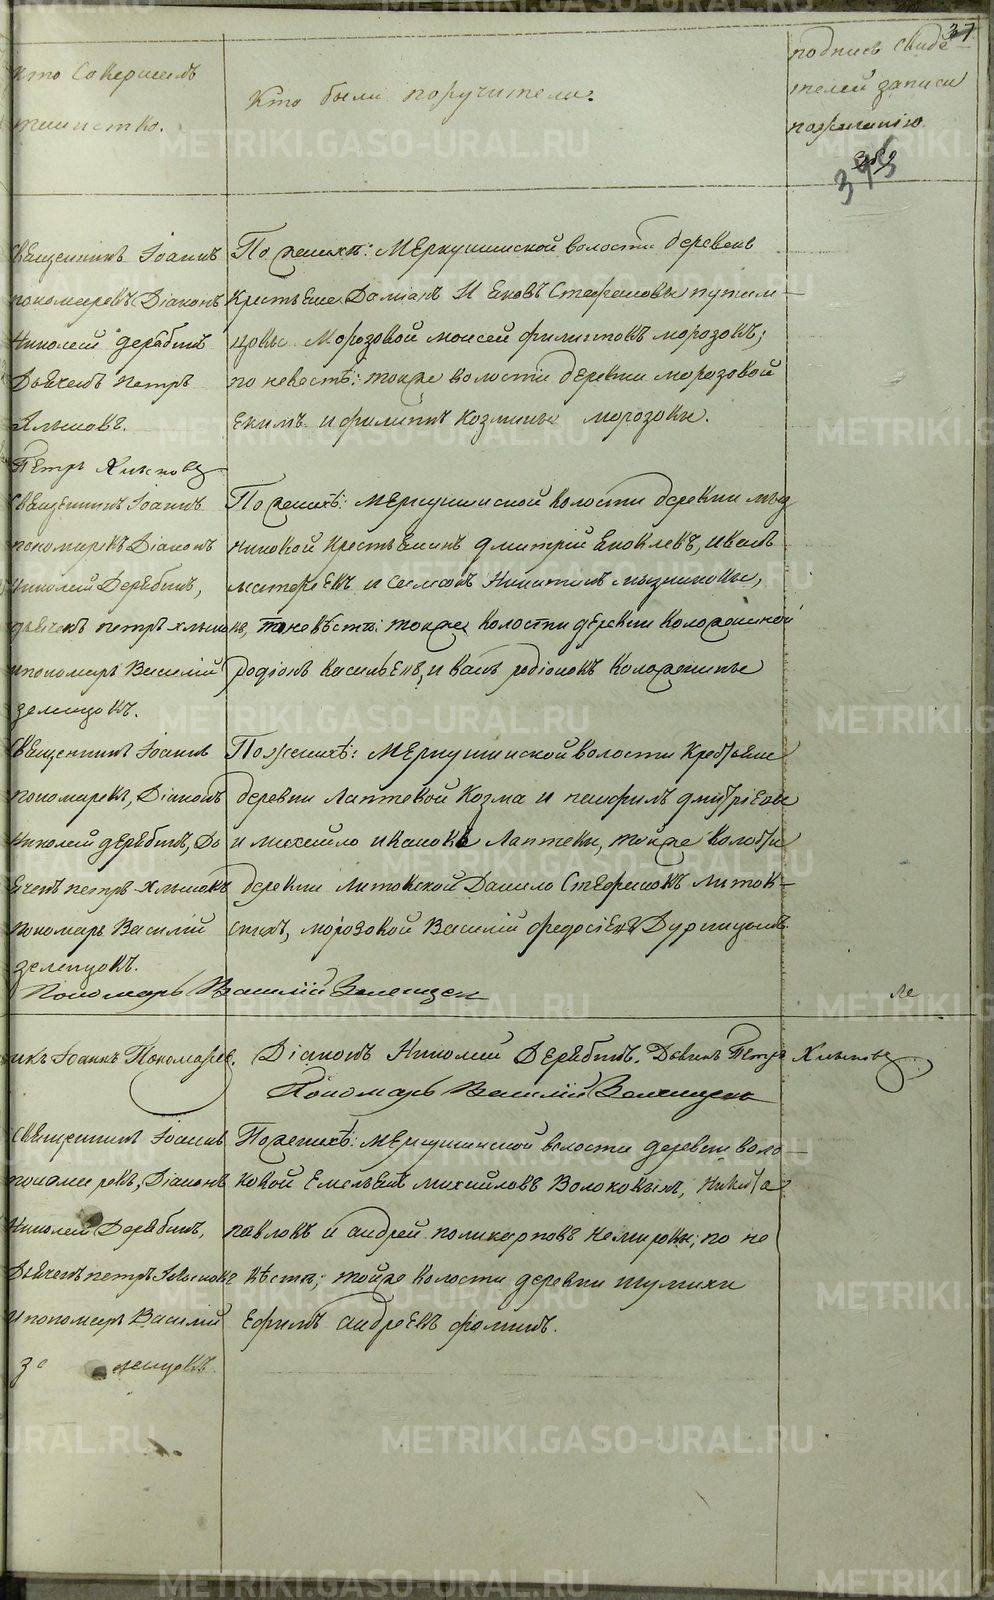 37
кто Совершилъ
таинство.
Кто были поручители.
подпись свиде
телей записи
по желанію
395
Священникъ Іоаннъ
пономаревъ Діаконъ
Николай Дерябинъ
Дьячекъ петръ
Хлыновъ.
Петръ Хлыновъ
По женихѣ: Меркушинской волости деревень
Крестьяне Даміанъ И Яковъ Стефановы путим-
цовы Морозовой моисей филиповъ морозовъ;
по невестѣ: тойже волости деревни морозовой
Екимъ и филиппъ Козмины морозовы.
Священникъ Іоаннъ
пономаревъ Діаконъ
Николай Дерябинъ,
дьячекъ петръ хлыновъ,
и пономарь Василий
зеленцовъ.
По женихѣ: меркушинской волости деревни мыз
никовой Крестьянинъ дмитрій Яковлевъ, иванъ
матфѣевъ и Никитинъ мызниковы,
по невѣсте: тойже волости деревни Воложениной
родіонъ васильевъ, иванъ родіоновъ Воложенины
Священникъ Іоаннъ
пономаревъ, Діаконъ
Николай дерябинъ, Дь
ячекъ петръ Хлыновъ
пономарь Василій
зеленцовъ.
Пономарь Василій Зеленцов
По женихѣ: Меркушинской волости Крестьяне
деревни Лаптевой Козма и панфилъ дмитріевы
и михайло ивановъ Лаптевы, тойже волости
деревни Литовской Данило Стефановъ Литов-
скихъ, морозовой Василій федосіевъ Дурницынъ.
икъ Іоаннъ Пономарев. Діаконъ Николай Дерябинъ. Дьячек Петръ Хлыновъ
Пономарь Василій Зеленцов
Священникъ Іоаннъ
пономаревъ, Діаконъ
Николай Дерябинъ,
Дьячекъ петръ Хлыновъ
и пономарь Василій
зе ленцовъ.
По женихѣ: меркушинской волости деревни воло-
ковой Емельянъ михайловъ Волоковыхъ, Никита
павловъ и андрей поликарповъ немировы; по не
вѣсте; тойже волости деревни шумихи
Ефимъ андреевъ фоминъ.